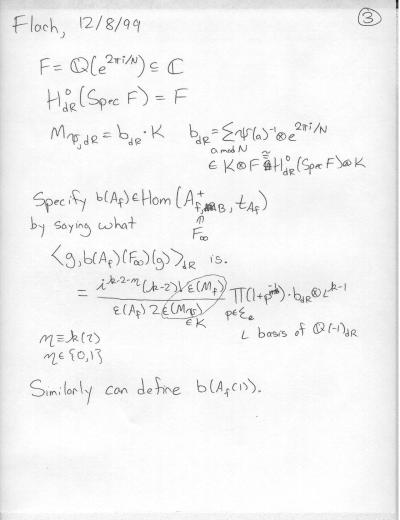 Flach, 12/8/99 ③
F = ℚ(e^{2πi/N}) ⊆ ℂ
H⁰_{dR}(Spec F) = F
M_{ψ,dR} = b_{dR}·K b_{dR} = Σ_{a mod N} ψ(a)^{-1} ⊗ e^{2πi/N}
∈ K⊗F ≅ H⁰_{dR}(Spec F)⊗K
Specify b(A_f) ∈ Hom(A^+_{f,B}, t_{A_f})
by saying what
⇑
F_∞
⟨g, b(A_f)(F_∞)(g)⟩_{dR} is.
= \frac{i^{k-2-η}(k-2)! ε(M_f)}{ε(A_f) 2 ε(M_ψ)} Π_{p∈Σ_e}(1+p^{-1})·b_{dR}⊗ι^{k-1}
∈K
ι basis of ℚ(-1)_{dR}
η ≡ k(2)
η ∈ {0,1}
Similarly can define b(A_f(1)).